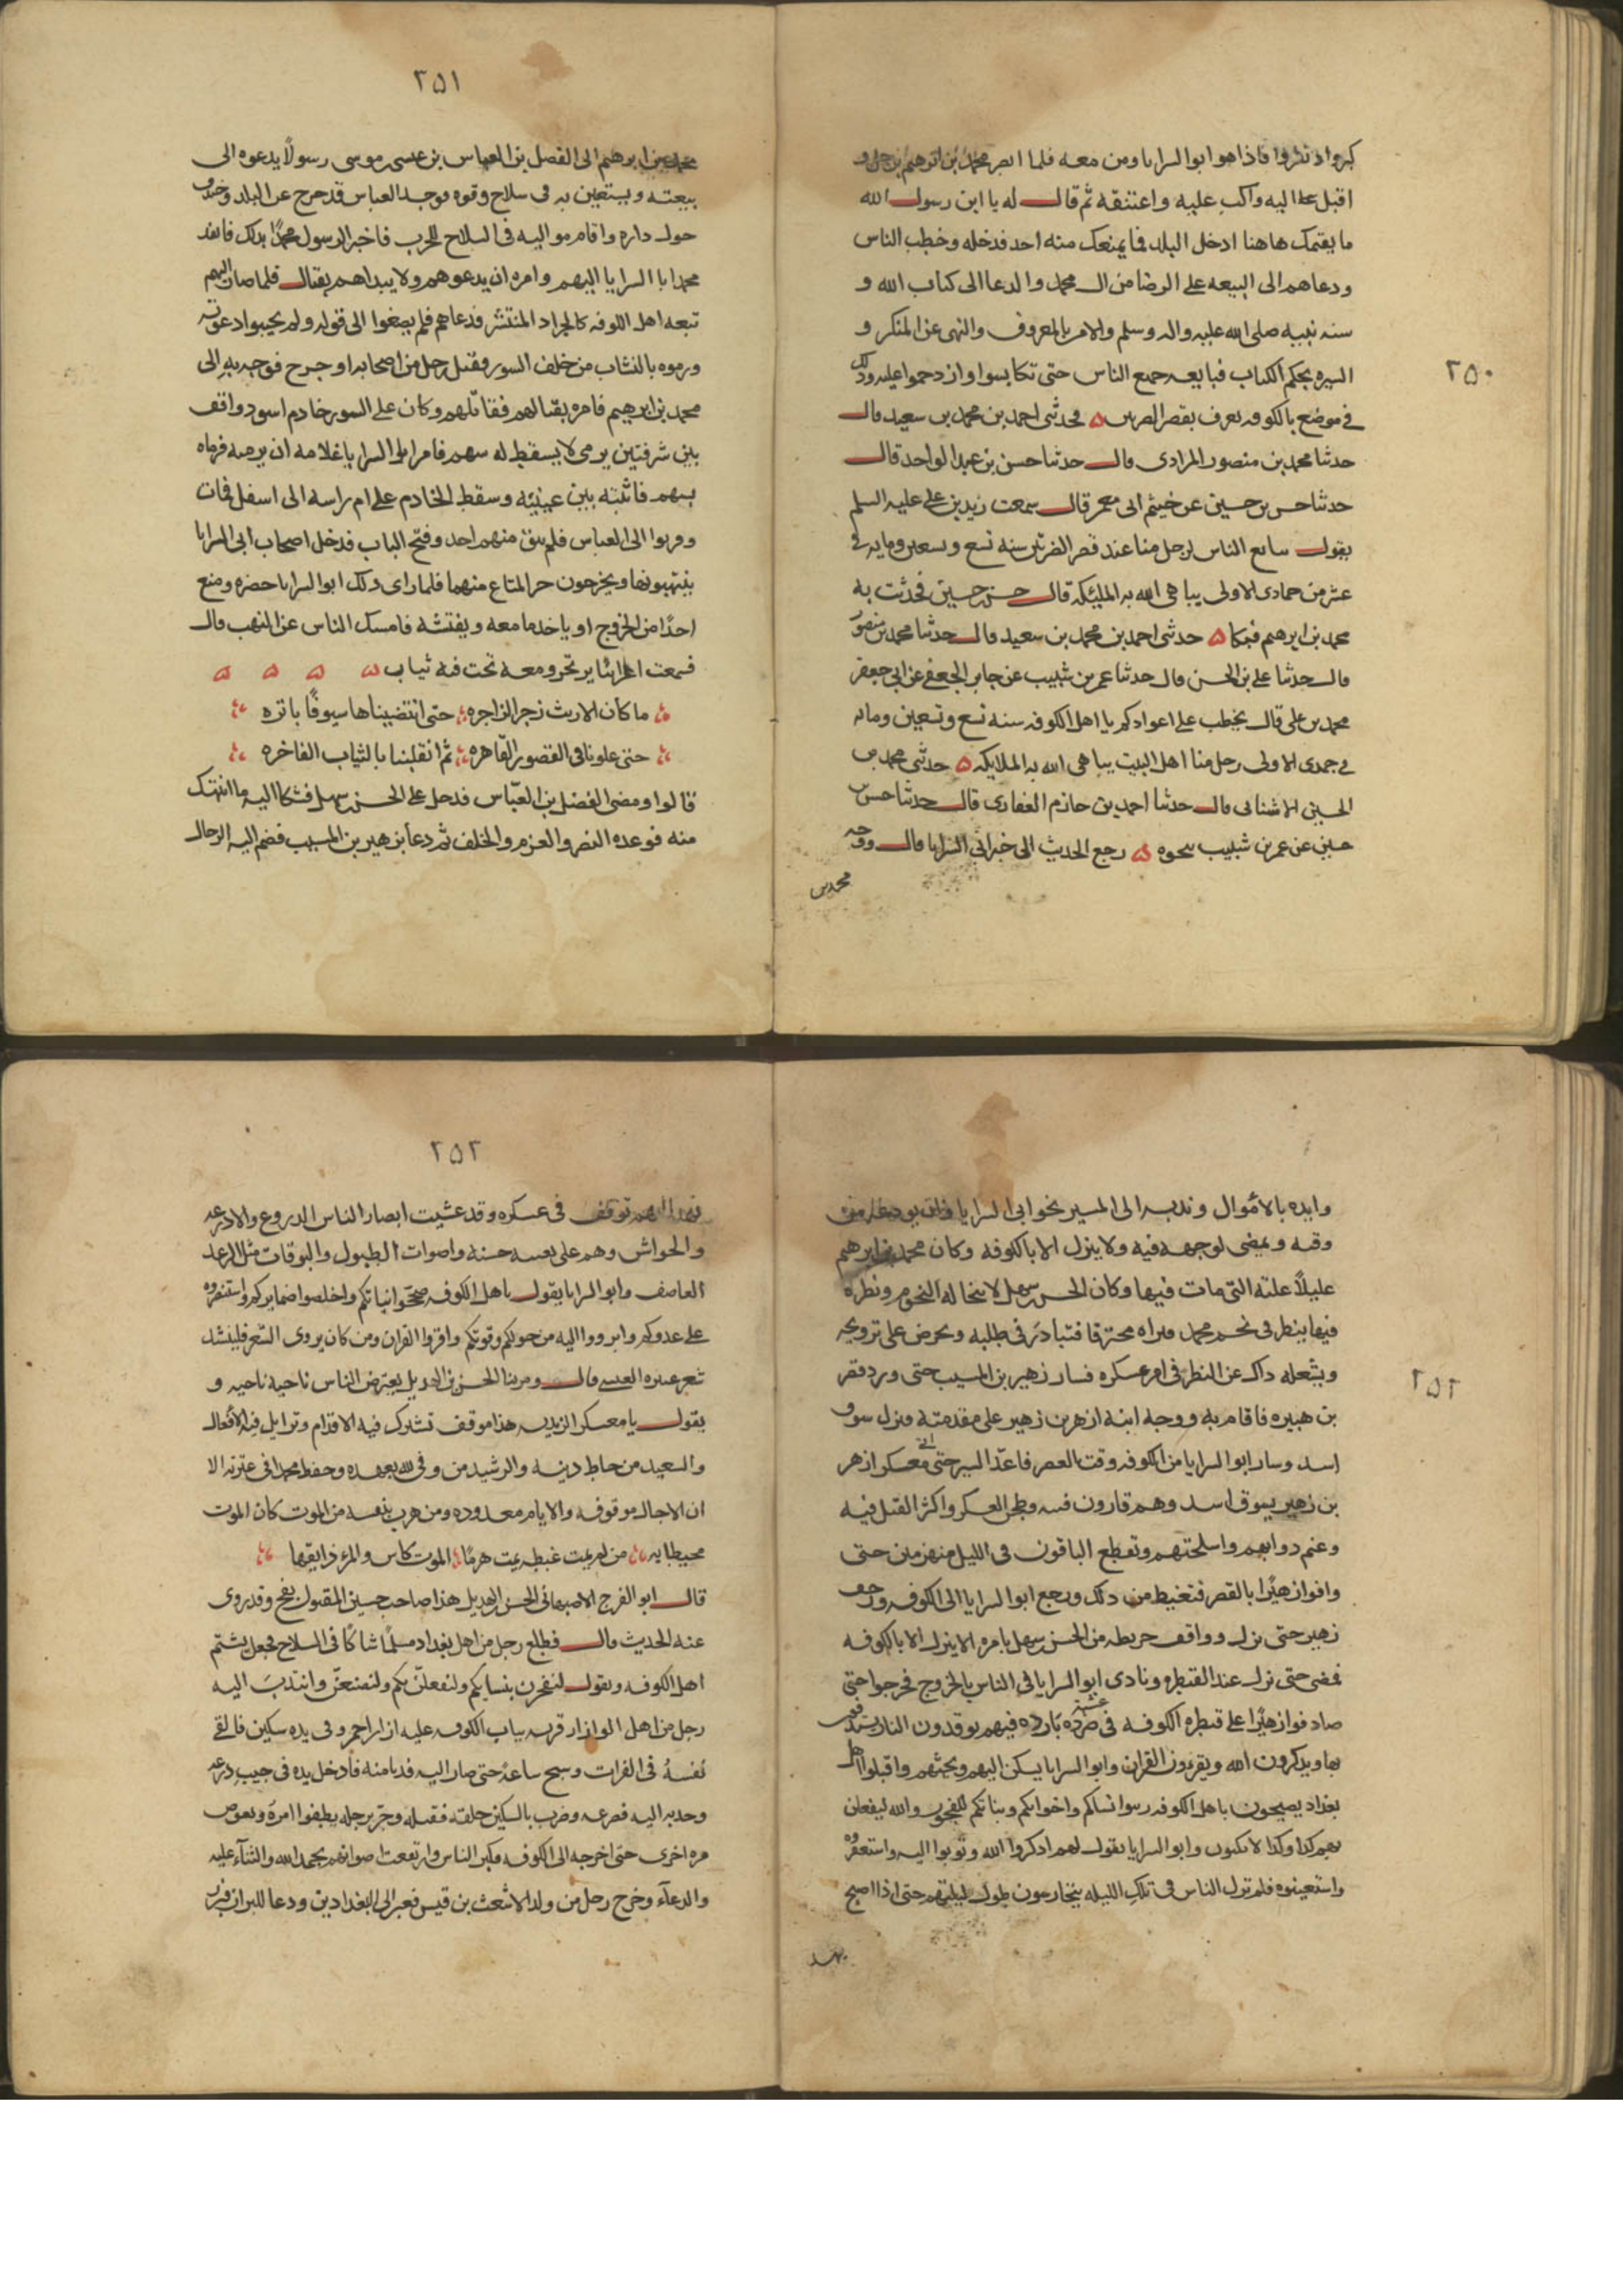 ٢٥٠
كبروا اذ نظروا فاذا هو ابو السرايا ومن معه فلما ابصر محمد بن ابرهيم نزحل و
اقبل اليه واكب عليه واعتنقه ثم قال له يا ابن رسول الله
ما يقتمك هاهنا ادخل البلد فما يمنعك منه احد فدخله وخطب الناس
ودعاهم الى البيعه على الرضا من ال محمد والدعا الى كتاب الله و
سنه نبيه صلى الله عليه واله وسلم والامر بالمعروف والنهى عن المنكر و
السيره بحكم الكتاب فبايعه جميع الناس حتى تكابسوا وازدحموا عليه وذلك
فى موضع بالكوفه يعرف بقصر الضرتين ۵ فحدثنى احمد بن محمد بن سعيد قال
حدثنا محمد بن منصور المرادى قال حدثنا حسن بن عبد الواحد قال
حدثنا حسن بن حسين عن خيثم ابى معمر قال سمعت زيد بن على عليه السلم
يقول يبايع الناس لرجل منا عند قصر الضرتين سنه تسع وتسعين ومايه فى
عشر من جمادى الاولى يباهى الله به المليكه قال حسن بن حسين فحدثت به
محمد بن ابرهيم فبكا ۵ حدثنى احمد بن محمد بن سعيد قال حدثنا محمد بن منصور
قال حدثنا على بن الحسن قال حدثنا عمر بن شبيب عن جابر الجعفى عن ابى جعفر
محمد بن على قال يخطب على اعوادكم يا اهل الكوفه سنه تسع وتسعين ومايه
فى جمدى الاولى رجل منا اهل البيت يباهى الله به الملايكه ۵ حدثنى محمد بن
الحسين الاشنانى قال حدثنا احمد بن حازم الغفارى قال حدثنا حسن بن
حسين عن عمر بن شبيب بنحوه ۵ رجع الحديث الى خبر ابى السرايا قال ووجه
محمد بن
٢٥١
محمد بن ابرهيم الى الفضل بن العباس بن عيسى بن موسى رسولًا يدعوه الى
بيعته ويستعين به فى سلاح وقوه فوجد العباس قد خرج عن البلد وخندق
حول داره واقام مواليه فى السلاح للحرب فاخبر الرسول محمدًا بذلك فانفذ
محمد ابا السرايا اليهم وامره ان يدعوهم ولا يبداهم بقتال فلما صار اليهم
تبعه اهل الكوفه كالجراد المنتشر فدعاهم فلم يصغوا الى قوله ولم يجيبوا دعوته
ورموه بالنشاب من خلف السور فقتل رجل من اصحابه او جرح فوجه به الى
محمد بن ابرهيم فامره بقتالهم فقاتلهم وكان على السور خادم اسود واقف
بين شرفتين يرمى لا يسقط له سهم فامر ابو السرايا غلامه ان يرميه فرماه
بسهم فاثبته بين عينيه وسقط الخادم على ام راسه الى اسفل فمات
وفروا الى العباس فلم يبق منهم احد وفتح الباب فدخل اصحاب ابى السرايا
ينتهبونها ويخرجون حر المتاع منهما فلما راى ذلك ابو السرايا حضره ومنع
احدًا من الخروج او ياخذ ما معه ويفتشه فامسك الناس عن النهب قال
فسمعت اعرابيًا يرتجز ومعه تحت فيه ثياب ۵ ۵ ۵ ۵
ما كان الا ريث زجر الزاجره حتى انتضيناها سيوفًا باتره
حتى علونا فى القصور القاهره ثم انقلبنا بالثياب الفاخره
قالوا ومضى الفضل بن العبّاس فدخل على الحسن بن سهل فشكا اليه ما انتهك
منه فوعده النصر والعزم والخلف ثم دعا بزهير بن المسيب فضم اليه الرجال
٢٥٢
وايده بالأموال وندبه الى المسير نحو ابى السرايا
وقته ويمضى لوجهه فيه ولا ينزل الا بالكوفه وكان محمد بن ابرهيم
عليلًا علته التى مات فيها وكان الحسن بن سهل لا ينحاله النجوم ونظره
فيها ينظر فى نجم محمد فيراه محترقا فيبادر فى طلبه ويحرض على ترويحه
ويشعله ذاك عن النظر فى امر عسكره فسار زهير بن المسيب حتى ورد قصر
بن هبيره فاقام به ووجه ابنه ازهر بن زهير على مقدمته فنزل سوق
اسد وسار ابو السرايا من الكوفه وقت العصر فاغذّ السير حتى اتى معسكر ازهر
بن زهير بسوق اسد وهم قارون فيه وطحن العسكر واكثر القتل فيه
وغنم دوابهم واسلحتهم وتقطع الباقون فى الليل منهزمين حتى
وافوا زهيرًا بالقصر فتغيظ من ذلك ورجع ابو السرايا الى الكوفه وزحف
زهير حتى نزل ووافت خريطه من الحسن بن سهل يامره الا ينزل الا بالكوفه
فمضى حتى نزل عند القنطره ونادى ابو السرايا فى الناس بالخروج فخرجوا حتى
صادفوا زهيرًا على قنطره الكوفه فى عشيه صرده بارده فهم يوقدون النار يستدفون
بها ويذكرون الله ويقرءون القران وابو السرايا يسكن اليهم ويحثهم واقبلوا اهل
بغداد يصيحون يا هل الكوفه زينوا نساكم واخواتكم وبناتكم للفجور والله ليفعلن
بهم كذا وكذا لا تكنون وابو السرايا يقول لهم اذكروا الله وتوبوا اليه واستغفروه
واستعينوه فلم تزل الناس فى تلك الليله يتحارسون طول ليلتهم حتى اذا اصبح
نهد
٢٥٢
نهد اليهم توقف فى عسكره وقد عشيت ابصار الناس الدروع والادرعه
والجواشن وهم على تعبيه حسنه واصوات الطبول والبوقات مثل الرعد
العاصف وابو السرايا يقول يا هل الكوفه صححوا نياتكم واخلصوا ضمايركم واستنصروه
على عدوكم وابرووا اليه من حولكم وقوتكم واقروا القران ومن كان يروى الشعر فلينشد
شعر عنتره العبسى قال ومر بنا الحسن بن الهذيل يعترض الناس ناحيه ناحيه و
يقول يا معسكر الزيديه هذا موقف تشترك فيه الاقدام وتزايل فيه الأفعال
والسعيد من حاط دينه والرشيد من وفى لله بعهده وحفظ محمدا فى عترته الا
ان الاجال موقوفه والايام معدوده ومن هرب بنفسه من الموت كان الموت
محيطا به من لم يمت غبطه يمت هرمًا الموت كاس والمرء ذايقها
قال ابو الفرج الاصبهانى الحسن بن الهذيل هذا صاحب حسين المقتول بفخ وقد روى
عنه الحديث قال فطلع رجل من اهل بغداد مسلمًا شاكًا فى السلاح فجعل يشتم
اهل الكوفه ويقول لنفجرن بنسايكم ولنفعلنّ بكم ولنصنعنّ وانتدب اليه
رجل من اهل الموازار قريه بباب الكوفه عليه ازار احمر وفى يده سكين فالقى
نفسه فى الفرات وسبح ساعة حتى صار اليه فدنا منه فادخل يده فى جيب درعه
وجذبه اليه فصرعه وضرب بالسكين حلقه فقتله وجر برجله يطفوا امرة ويغوص
مره اخرى حتى اخرجه الى الكوفه فكبر الناس وارتفعت اصواتهم بحمد الله والثنآء عليه
والدعآء وخرج رجل من ولد الاشعث بن قيس فعبر الى البغدادين ودعا للبراز فبرز